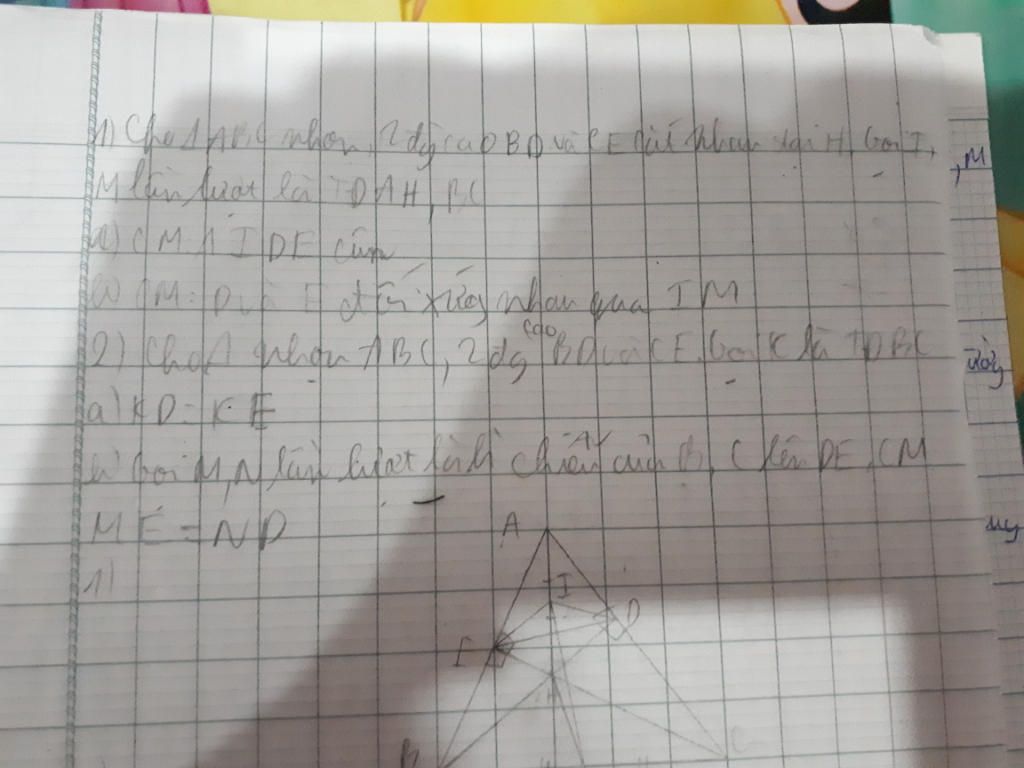 1) Cho Δ ABC nhọn, 2 đg cao BD và CE cắt nhau tại H. Gọi I,
M lần lượt là TĐ AH, BC
a) CM Δ IDE cân
b) CM: D và E đối xứng nhau qua IM
2) Cho Δ nhọn ABC, 2 đg cao BD và CE. Gọi K là TĐ BC
a) KD = KE
b) Gọi M, N lần lượt là h chiếu của B, C lên DE. CM
ME = ND
1)
A
I
D
E
H
B
C
,M